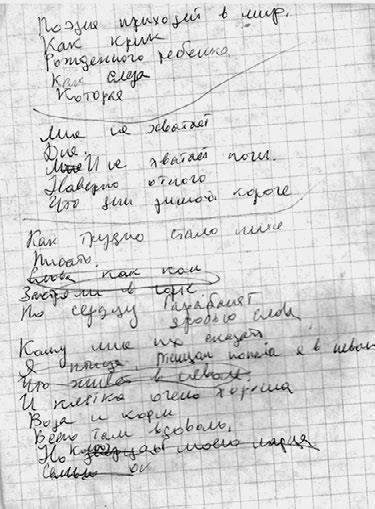 Поэзия приходит в мир.
Как крик
Рожденного ребенка
Как слеза
Которая
Мне не хватает
Дня.
И не хватает ночи.
Наверно оттого
Что дни зимой короче
Как трудно стало мне
Писать.
Слова как ком
Застряли в горле
По сердцу тарабанят
дробью слова
Кому мне их сказать
Я птица. попала я в неволю
Что живет в неволе.
И клетка очень хороша
Вода и корм
Всего там вдоволь.
Но моего